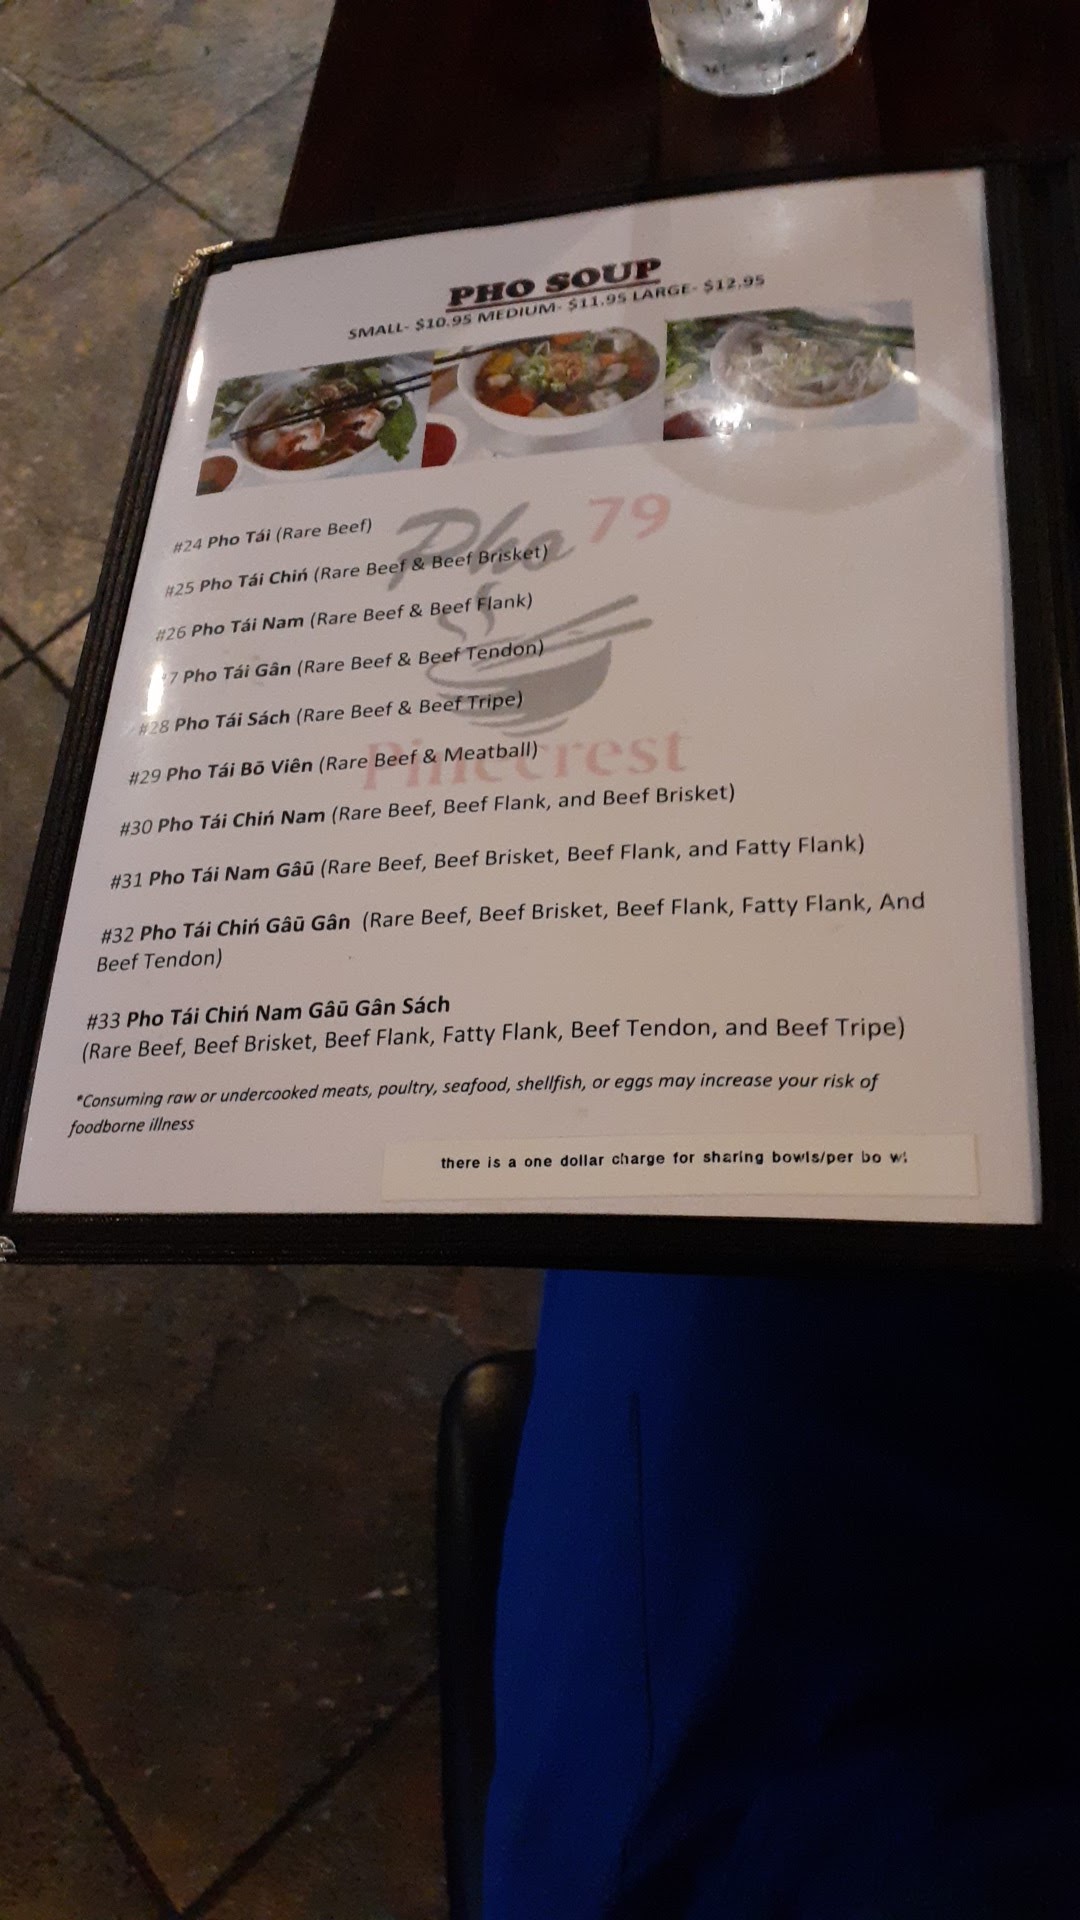 PHO SOUP
SMALL- $10.95 MEDIUM- $11.95 LARGE- $12.95
Pho 79
Pinecrest
#24 Pho Tái (Rare Beef)
#25 Pho Tái Chiń (Rare Beef & Beef Brisket)
#26 Pho Tái Nam (Rare Beef & Beef Flank)
7 Pho Tái Gân (Rare Beef & Beef Tendon)
#28 Pho Tái Sách (Rare Beef & Beef Tripe)
#29 Pho Tái Bō Viên (Rare Beef & Meatball)
#30 Pho Tái Chiń Nam (Rare Beef, Beef Flank, and Beef Brisket)
#31 Pho Tái Nam Gâū (Rare Beef, Beef Brisket, Beef Flank, and Fatty Flank)
#32 Pho Tái Chiń Gâū Gân (Rare Beef, Beef Brisket, Beef Flank, Fatty Flank, And
Beef Tendon)
#33 Pho Tái Chiń Nam Gâū Gân Sách
(Rare Beef, Beef Brisket, Beef Flank, Fatty Flank, Beef Tendon, and Beef Tripe)
*Consuming raw or undercooked meats, poultry, seafood, shellfish, or eggs may increase your risk of
foodborne illness
there is a one dollar charge for sharing bowls/per bowl